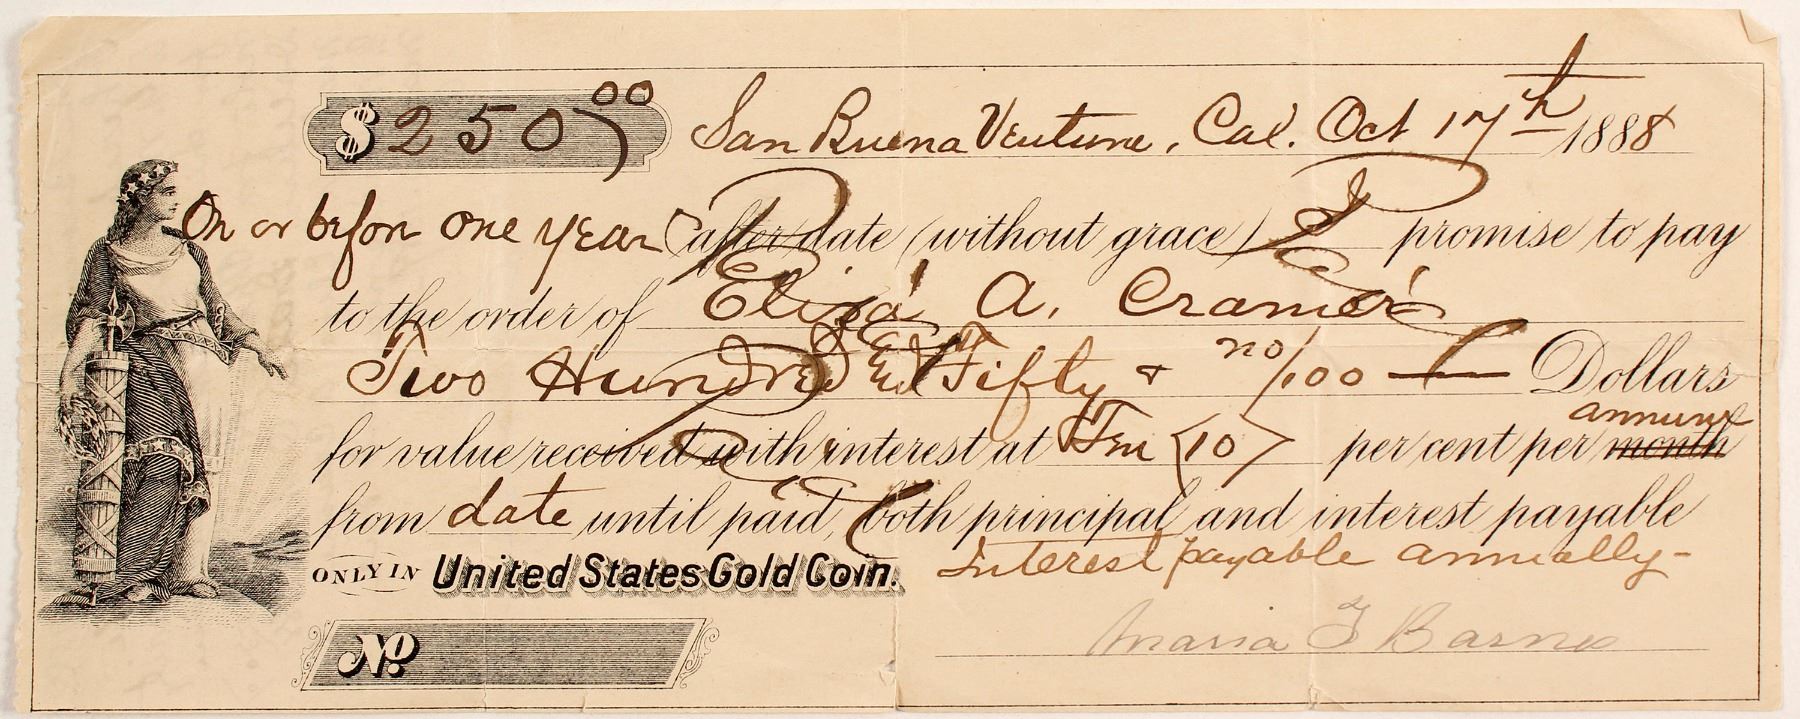 $250.00 San Buena Ventura, Cal. Oct 17th 1888
On or before one year after date (without grace) I promise to pay
to the order of Eliza A. Cramer
Two Hundred & Fifty & no/100 Dollars
annum
for value received with interest at Ten <10> per cent per month
from date until paid, both principal and interest payable
ONLY IN United States Gold Coin. Interest payable annually -
Maria F Barnes
No.